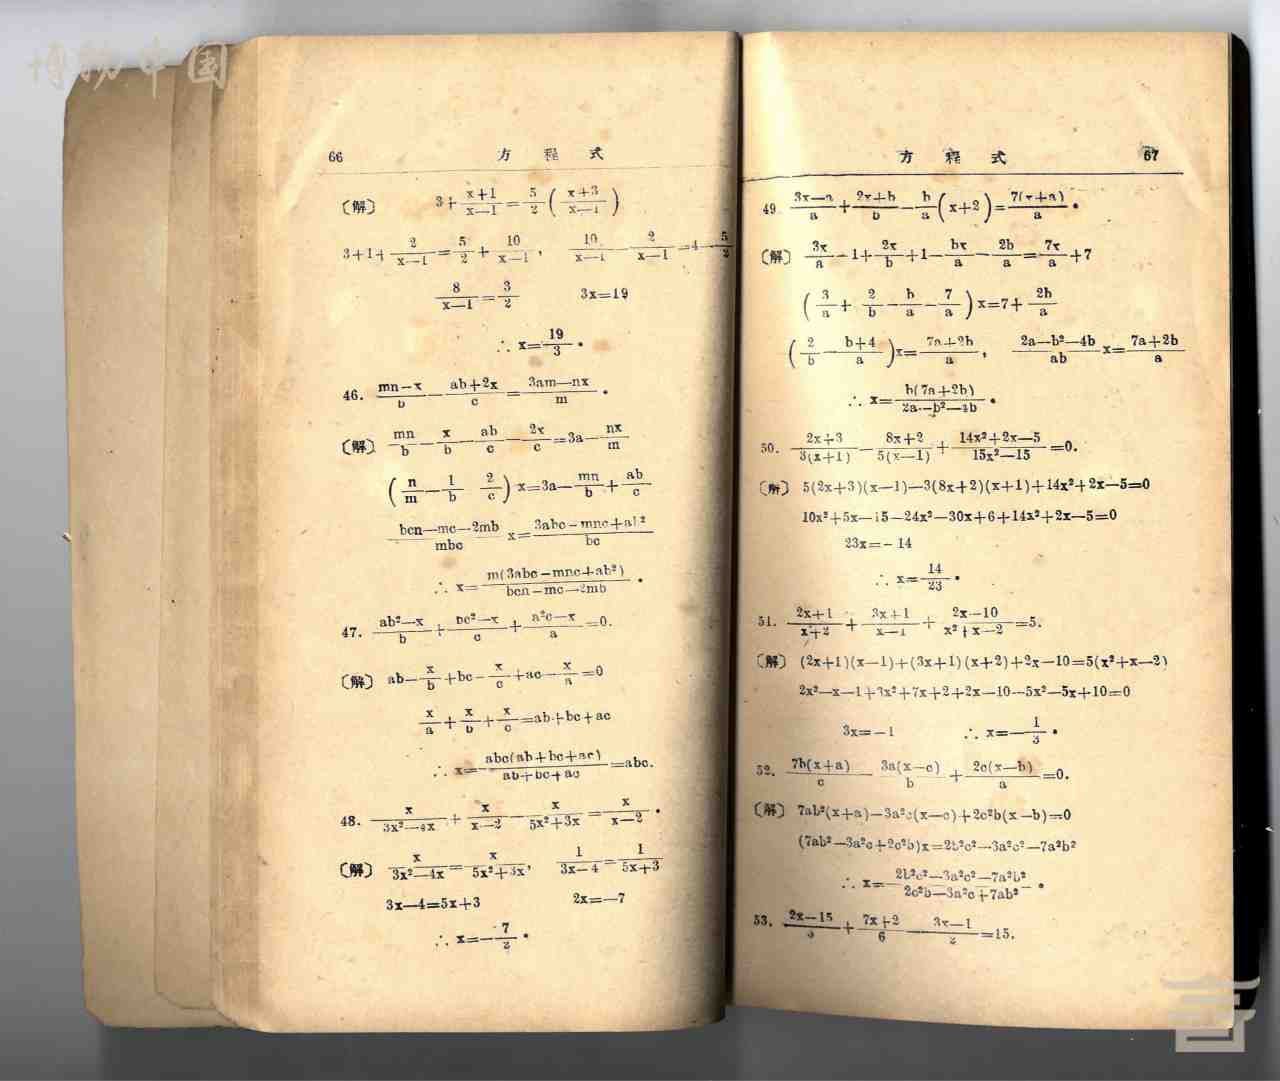 博物中国
66 方程式
〔解〕 3+(x+1)/(x—1)=5/2((x+3)/(x—1))
3+1+2/(x—1)=5/2+10/(x—1), 10/(x—1)—2/(x—1)=4—5/2
8/(x—1)=3/2 3x=19
∴ x=19/3.
46. (mn—x)/b—(ab+2x)/c=(3am—nx)/m.
〔解〕 mn/b—x/b—ab/c—2x/c=3a—nx/m
(n/m—1/b 2/c)x=3a—mn/b+ab/c
(bcn—mc—2mb)/mbc x=(3abc—mnc+ab²)/bc
∴ x=m(3abc—mnc+ab²)/(bcn—mc—2mb).
47. (ab²—x)/b+(bc²—x)/c+(a²c—x)/a=0.
〔解〕 ab—x/b+bc—x/c+ac—x/a=0
x/a+x/b+x/c=ab+bc+ac
∴ x=abc(ab+bc+ac)/(ab+bc+ac)=abc.
48. x/(3x²—4x)+x/(x—2)—x/(5x²+3x)=x/(x—2).
〔解〕 x/(3x²—4x)=x/(5x²+3x), 1/(3x—4)=1/(5x+3)
3x—4=5x+3 2x=—7
∴ x=—7/2.
方程式 67
49. (3x—a)/a+(2x+b)/b—b/a(x+2)=7(x+a)/a.
〔解〕 3x/a—1+2x/b+1—bx/a—2b/a=7x/a+7
(3/a+2/b—b/a—7/a)x=7+2b/a
(2/b—(b+4)/a)x=(7a+2b)/a, (2a—b²—4b)/ab x=(7a+2b)/a
∴ x=b(7a+2b)/(2a—b²—4b).
50. (2x+3)/3(x+1)—(8x+2)/5(x—1)+(14x²+2x—5)/(15x²—15)=0.
〔解〕 5(2x+3)(x—1)—3(8x+2)(x+1)+14x²+2x—5=0
10x²+5x—15—24x²—30x+6+14x²+2x—5=0
23x=—14
∴ x=14/23.
51. (2x+1)/(x+2)+(3x+1)/(x—1)+(2x—10)/(x²+x—2)=5.
〔解〕 (2x+1)(x—1)+(3x+1)(x+2)+2x—10=5(x²+x—2)
2x²—x—1+3x²+7x+2+2x—10—5x²—5x+10=0
3x=—1 ∴ x=—1/3.
52. 7b(x+a)/c—3a(x—c)/b+2c(x—b)/a=0.
〔解〕 7ab²(x+a)—3a²c(x—c)+2c²b(x—b)=0
(7ab²—3a²c+2c²b)x=2b²c²—3a²c²—7a²b²
∴ x=(2b²c²—3a²c²—7a²b²)/(2c²b—3a²c+7ab²).
53. (2x—15)/3+(7x+2)/6—(3x—1)/2=15.